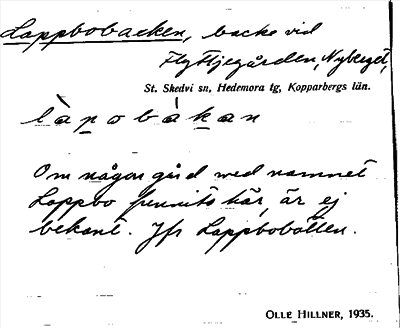 Lappbobacken, backe vid
Flyttjegården, Nyberget,
St. Skedvi sn, Hedemora tg, Kopparbergs län.
làpobàkan
Om någon gård med namnet
Lappbo funnits här, är ej
bekant. Jfr Lappbobotten.
OLLE HILLNER, 1935.